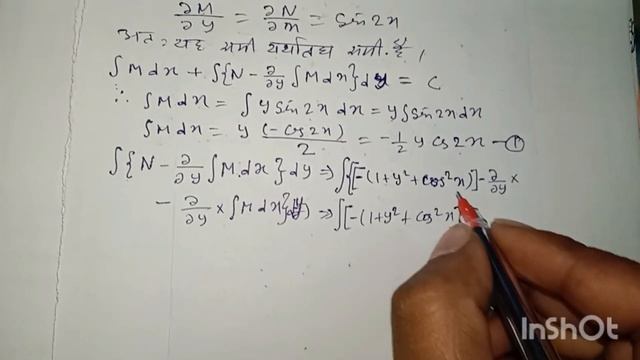 ∂M/∂y = ∂N/∂x = sin2x
अतः यह समी यर्थातथ समी. है।
∫Mdx + ∫{N - ∂/∂y ∫Mdx}dy = C
∴ ∫Mdx = ∫y sin2x dx = y∫sin2xdx
∫Mdx = y (-cos2x)/2 = -1/2 y cos2x - ①
∫{N - ∂/∂y ∫M.dx}dy ⇒ ∫{[-(1+y²+cos²x)] - ∂/∂y ×
- ∂/∂y × ∫Mdx}dy) ⇒ ∫[-(1+y²+cos²x
InShOt